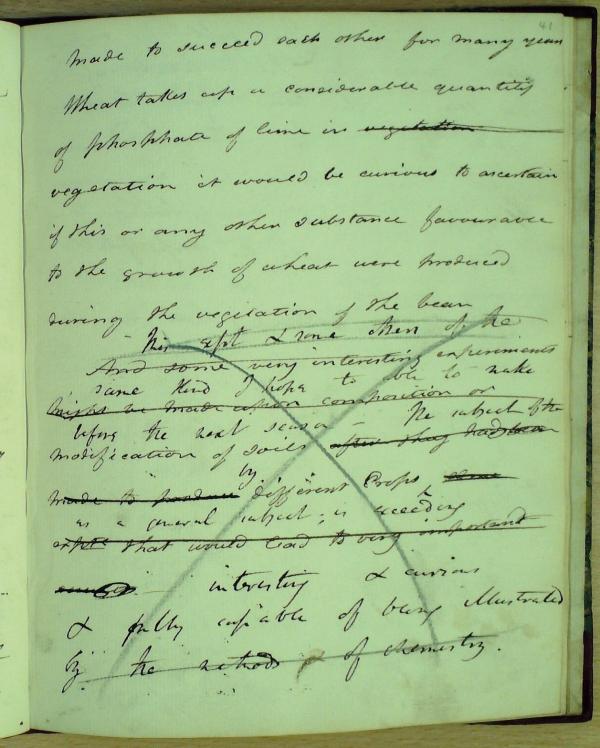 41
made to succeed each other for many years
Wheat takes up a considerable quantity
of phosphate of lime in vegetation
vegetation it would be curious to ascertain
if this or any other substance favourable
to the growth of wheat were produced
during the vegetation of the bean
This expt & some other of the
And some very interesting experiments
same kind I hope to be able to make
might be made upon composition or
before the next season – The subject of the
modification of soils after they had been
by
made to produce different Crops some
as a general subject, is exceeding
expts that would lead to very important
interesting & curious
& fully capable of being illustrated
by the methods of chemistry.